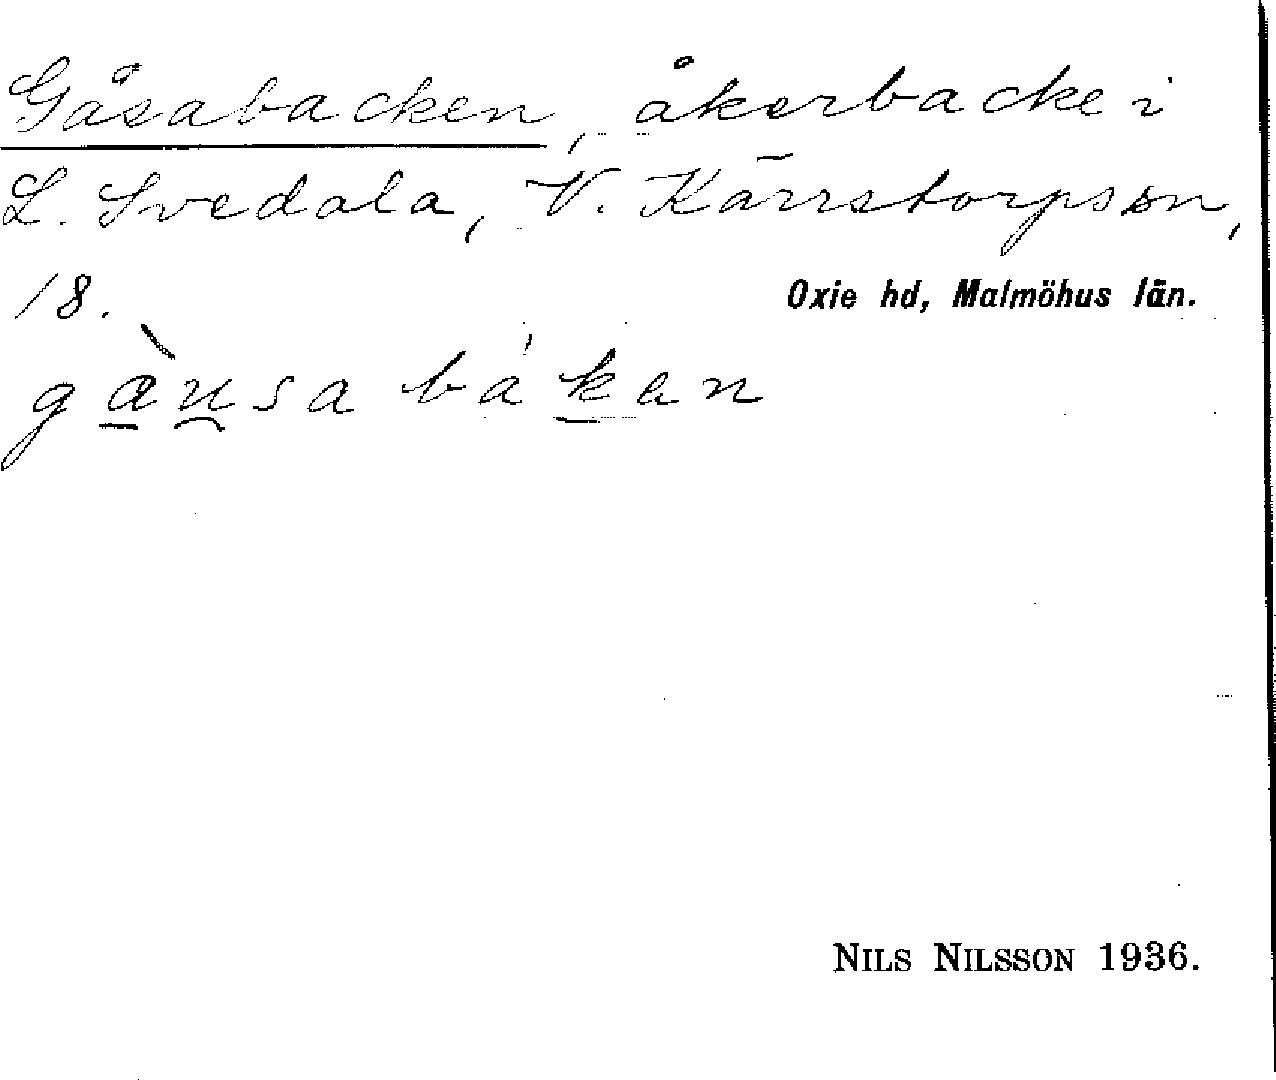 Gåsabacken, åkerbacke i
L. Svedala, V. Kärrstorps sn,
18.
Oxie hd, Malmöhus län.
gæ̀u̯sa bákan
NILS NILSSON 1936.